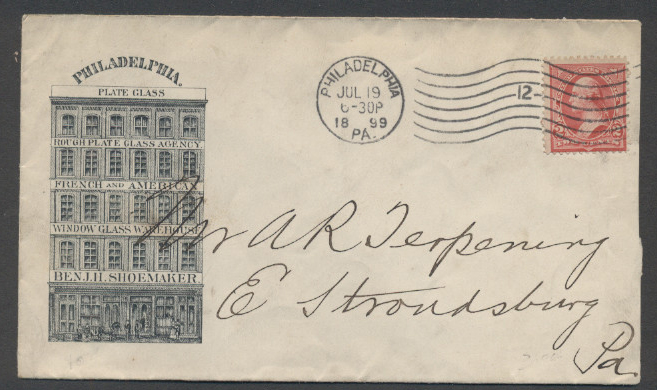 PHILADELPHIA.
PLATE GLASS
ROUGH PLATE GLASS AGENCY
FRENCH AND AMERICAN
WINDOW GLASS WAREHOUSE
BENJ. H. SHOEMAKER
PHILADELPHIA
JUL 19
6-30P
18 99
PA.
12-
2 2
Mr A R Terpening
E Stroudsburg
Pa